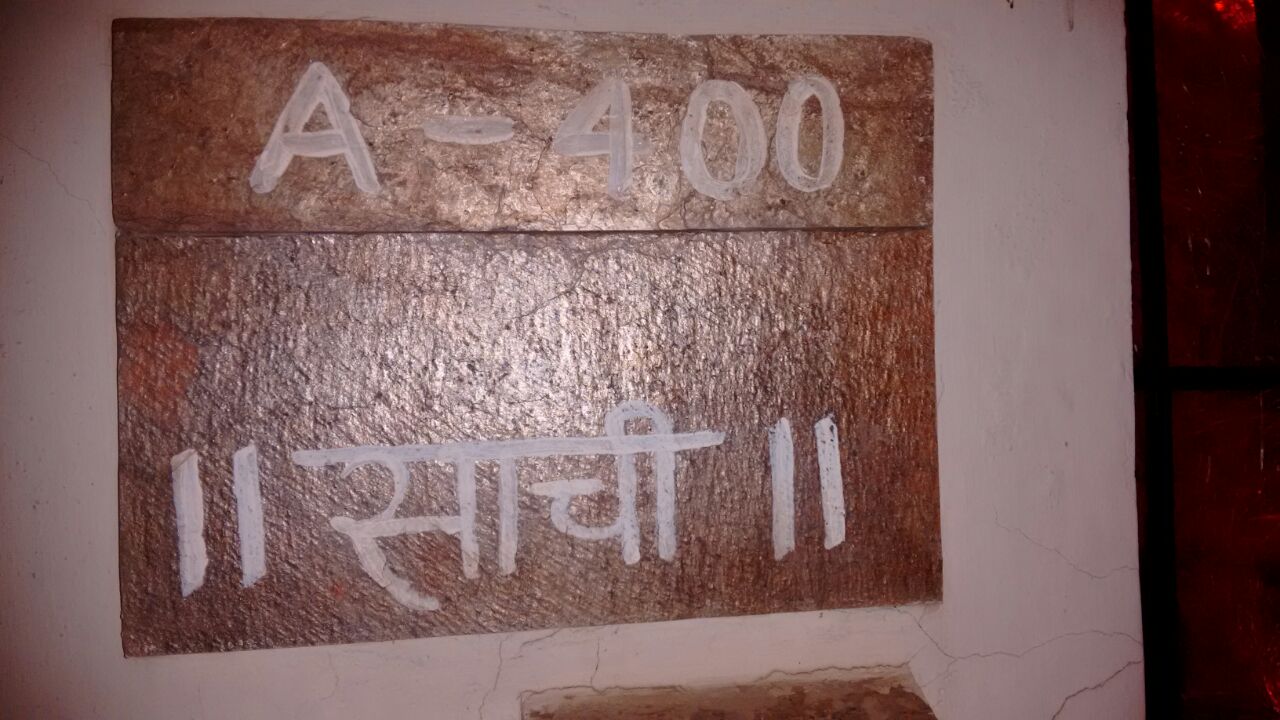 A-400
॥ साची ॥